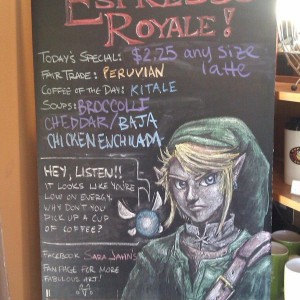 ESPRESSO
ROYALE!
TODAY'S SPECIAL: $2.25 any size latte
FAIR TRADE: PERUVIAN
COFFEE OF THE DAY: KITALE
SOUPS: BROCCOLI
CHEDDAR/BAJA
CHICKEN ENCHILADA
HEY, LISTEN!!
IT LOOKS LIKE YOU'RE
LOW ON ENERGY.
WHY DON'T YOU
PICK UP A CUP
OF COFFEE?
FACEBOOK SARA JAHN'S
FANPAGE FOR MORE
FABULOUS ART!